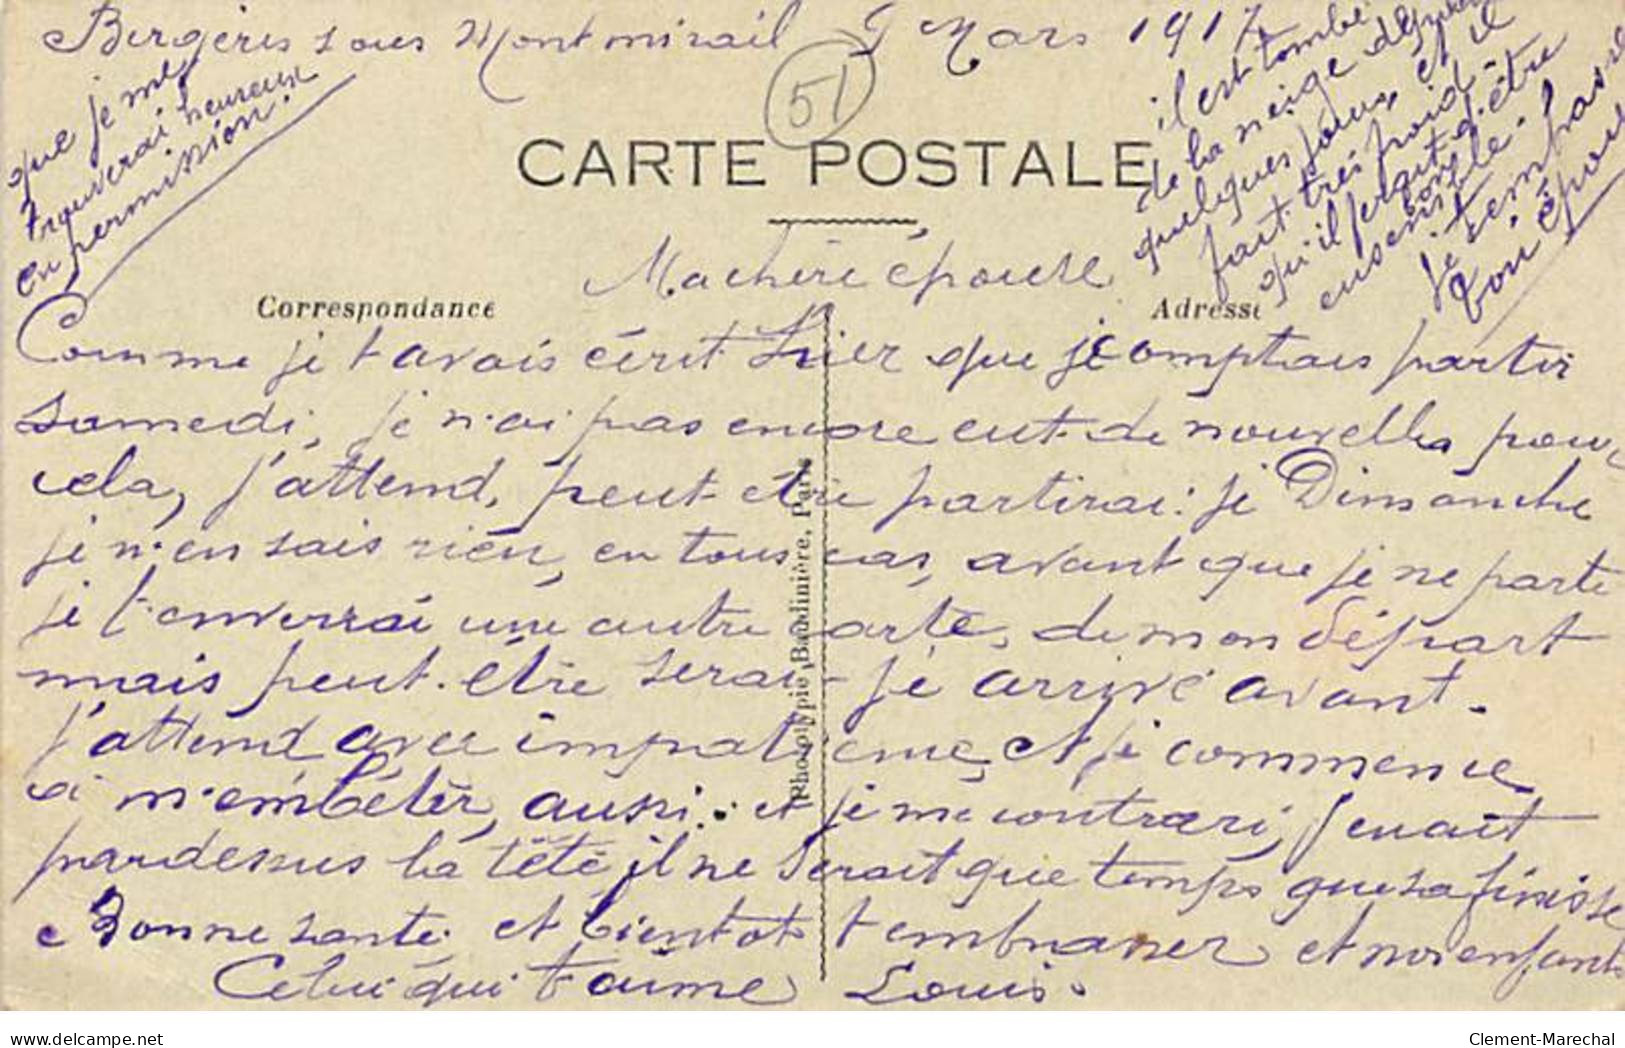 Bergères sous Montmirail 9 Mars 1917
51
CARTE POSTALE
Ma chère épouse
Correspondance
Adresse
Comme je t'avais écrit hier que je comptais partir
samedi, je n'ai pas encore eut de nouvelles pour
cela, j'attend, peut être partirai je Dimanche
je n'en sais rien, en tous cas, avant que je ne parte
je t'enverrai une autre carte, de mon départ
mais peut-être serai-je arrivé avant.
J'attend avec impatience, et je commence
à m'embéter, aussi. et je me contrari, J'enait
pardessus la tété il ne serait que temps que sa finisse
Bonne santé et bientot t'embrasser et nos enfants
Celui qui t'aime Louis.
que je me
trouverai heureux
en permission.
il est tombé
de la neige depuis
quelques jours, et il
fait très froid.
qu'il ferait bon d'être
ensemble.
je t'embrasse
ton épou
Phototypie Baudinière, Paris
delcampe.net
Clement-Marechal